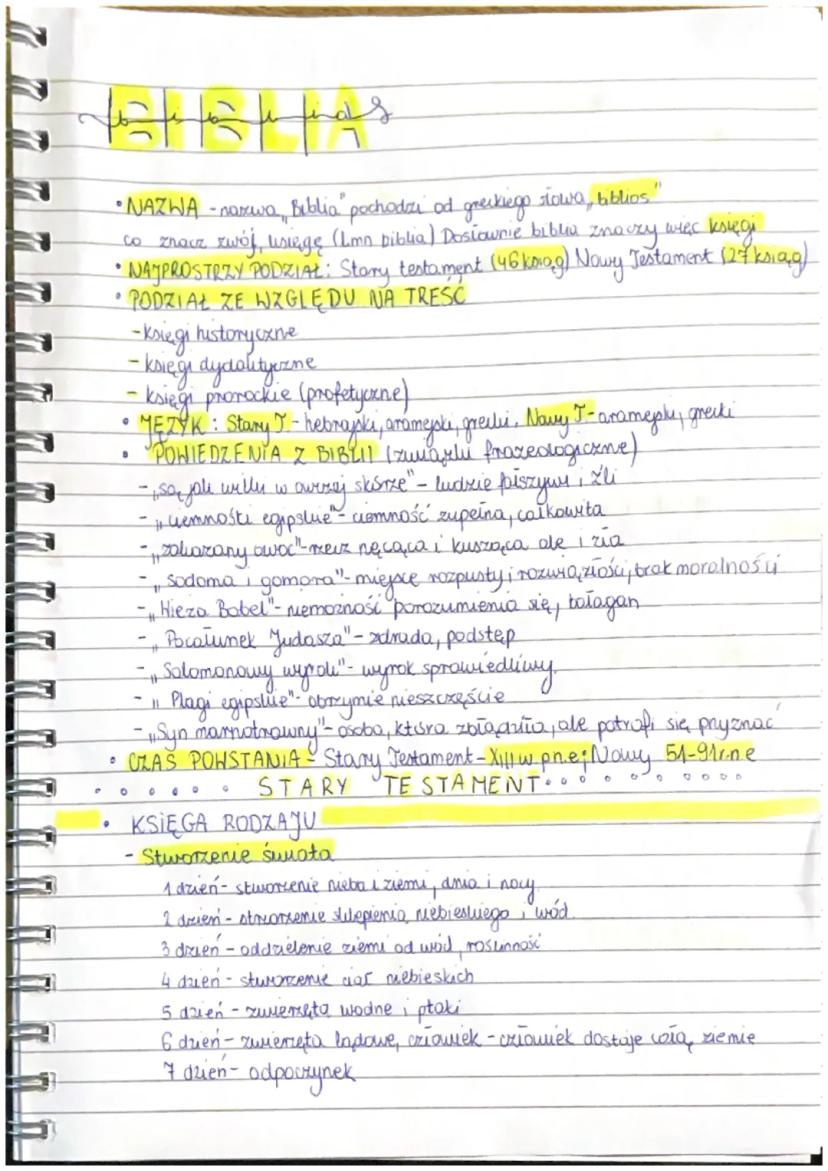 BIBLIA
• NAZWA - nazwa „Biblia" pochodzi od greckiego słowa „biblios"
co znacz zwój, księgę (Lmn biblia) Dosłownie biblia znaczy więc księgi
• NAJPROSTRZY PODZIAŁ: Stary testament (46 ksiąg) Nowy Testament (27 ksiąg)
• PODZIAŁ ZE WZGLĘDU NA TREŚĆ
- księgi historyczne
- księgi dydaktyczne
- księgi prorockie (profetyczne)
• JĘZYK: Stary T - hebrajski, aramejski, grecki. Nowy T - aramejski, grecki
• POWIEDZENIA Z BIBLII (związki frazeologiczne)
- „są jak wilki w owczej skórze" - ludzie fałszywi i źli
- „ciemności egipskie" - ciemność zupełna, całkowita
- „zakazany owoc" - rzecz nęcąca i kusząca ale i zła
- „Sodoma i gomora" - miejsce rozpusty i rozwiązłości, brak moralności
- „Wieża Babel" - niemożność porozumienia się, bałagan
- „Pocałunek Judasza" - zdrada, podstęp
- „Salomonowy wyrok" - wyrok sprawiedliwy.
- „Plagi egipskie" - obrzymie nieszczęście
- „Syn marnotrawny" - osoba, która zbłądziła, ale potrafi się przyznać
• CZAS POWSTANIA - Stary Testament - XIII w. p.n.e; Nowy 51-91r.n.e
STARY TESTAMENT
• KSIĘGA RODZAJU
- Stworzenie świata
1 dzień - stworzenie nieba i ziemi, dnia i nocy
2 dzień - stworzenie sklepienia niebieskiego i wód
3 dzień - oddzielenie ziemi od wód, roślinność
4 dzień - stworzenie ciał niebieskich
5 dzień - zwierzęta wodne i ptaki
6 dzień - zwierzęta lądowe, człowiek - człowiek dostaje całą ziemie
7 dzień - odpoczynek